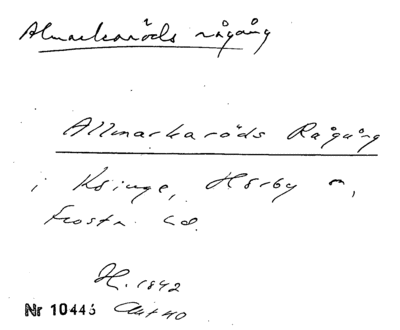 Almarkaröds rågång
Allmarkaröds Rågång
i Ksinge, Hörby n,
Frosta hd.
H. 1842
Nr 10443 Akt 40